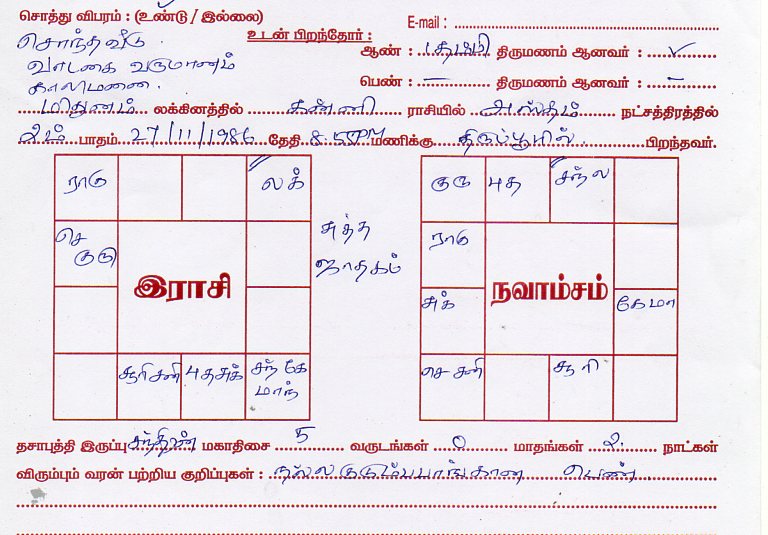 சொத்து விபரம் : (உண்டு / இல்லை)
E-mail :
சொந்தவீடு.
உடன் பிறந்தோர் :
ஆண் : தம்பி திருமணம் ஆனவர் : ✓
வாடகை வருமானம்
காலிமனை.
பெண் : — திருமணம் ஆனவர் : –
மிதுனம் லக்கினத்தில் கன்னி ராசியில் அஸ்தம் நட்சத்திரத்தில்
2ம் பாதம் 27/11/1986 தேதி 8.50PM மணிக்கு திருப்பூரில் பிறந்தவர்.
ராகு லக்
செ குரு
இராசி
சூரி சனி புத சுக் சந் கே மாந்
சுத்த
ஜாதகம்
குரு புத சந் ல
ராகு
நவாம்சம்
சுக் கே மா
செ சனி சூரி
தசாபுத்தி இருப்பு சந்திரன் மகாதிசை 5 வருடங்கள் 0 மாதங்கள் 2 நாட்கள்
விரும்பும் வரன் பற்றிய குறிப்புகள் : நல்ல குடும்பபாங்கான பெண்.